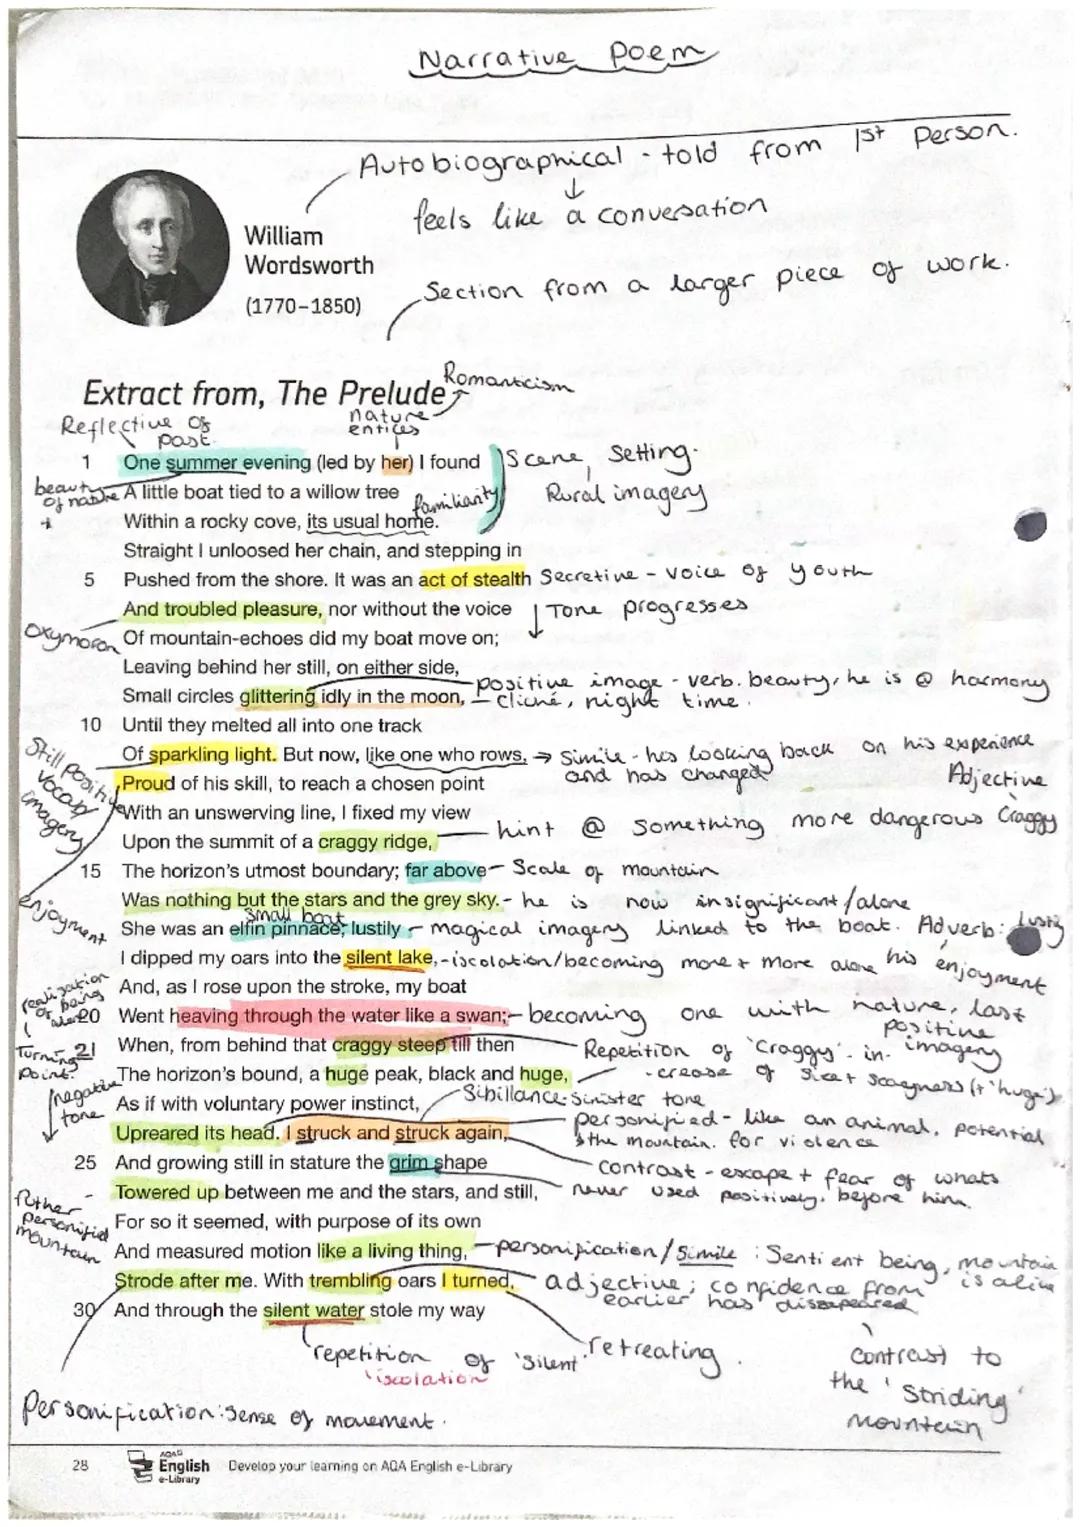 Narrative Poem
Autobiographical - told from 1st Person.
↓
feels like a conversation
William
Wordsworth
(1770–1850)
Section from a larger piece of work.
Extract from, The Prelude
Romanticism
Reflective of past.
nature entices
1 One summer evening (led by her) I found
Scene, Setting.
beauty of nature +
A little boat tied to a willow tree
familiarity
Rural imagery
Within a rocky cove, its usual home.
Straight I unloosed her chain, and stepping in
5 Pushed from the shore. It was an act of stealth
Secretive - voice of youth
And troubled pleasure, nor without the voice
↓ Tone progresses
oxymoron
Of mountain-echoes did my boat move on;
Leaving behind her still, on either side,
Small circles glittering idly in the moon,
positive image - verb. beauty, he is @ harmony
- cliché, night time.
10 Until they melted all into one track
Of sparkling light. But now, like one who rows,
→ Simile - hes looking back on his experience
and has changed
Still positive vocab/ imagery
Proud of his skill, to reach a chosen point
Adjective
Craggy
With an unswerving line, I fixed my view
Upon the summit of a craggy ridge,
hint @ something more dangerous
15 The horizon's utmost boundary; far above
- Scale of mountain
Was nothing but the stars and the grey sky.
- he is now insignificant/alone
enjoyment
small boat
She was an elfin pinnace; lustily
- magical imagery linked to the boat. Adverb: lustily
his enjoyment
I dipped my oars into the silent lake,
- iscolation/becoming more + more alone
realization of being alone
And, as I rose upon the stroke, my boat
20 Went heaving through the water like a swan;
- becoming one with nature, last positive imagery
Turning point.
21 When, from behind that craggy steep till then
Repetition of 'Craggy' - in-
-crease of size + scaryness (+ 'huge')
The horizon's bound, a huge peak, black and huge,
negative tone
↓
As if with voluntary power instinct,
Sibillance - sinister tone
Upreared its head. I struck and struck again,
personified - like an animal, potential
↳ the mountain. for violence
25 And growing still in stature the grim shape
contrast - escape + fear of whats
before him.
Towered up between me and the stars, and still,
never used positively.
futher personified mountain
For so it seemed, with purpose of its own
And measured motion like a living thing,
- personification/Simile : Sentient being, mountain is alive
Strode after me. With trembling oars I turned,
adjective; confidence from
earlier has dissapeared
30 And through the silent water stole my way
repetition of 'silent'
'iscolation
retreating.
Contrast to
the 'Striding'
mountain
Personification: Sense of movement.
28
AQA
English
e-Library
Develop your learning on AQA English e-Library